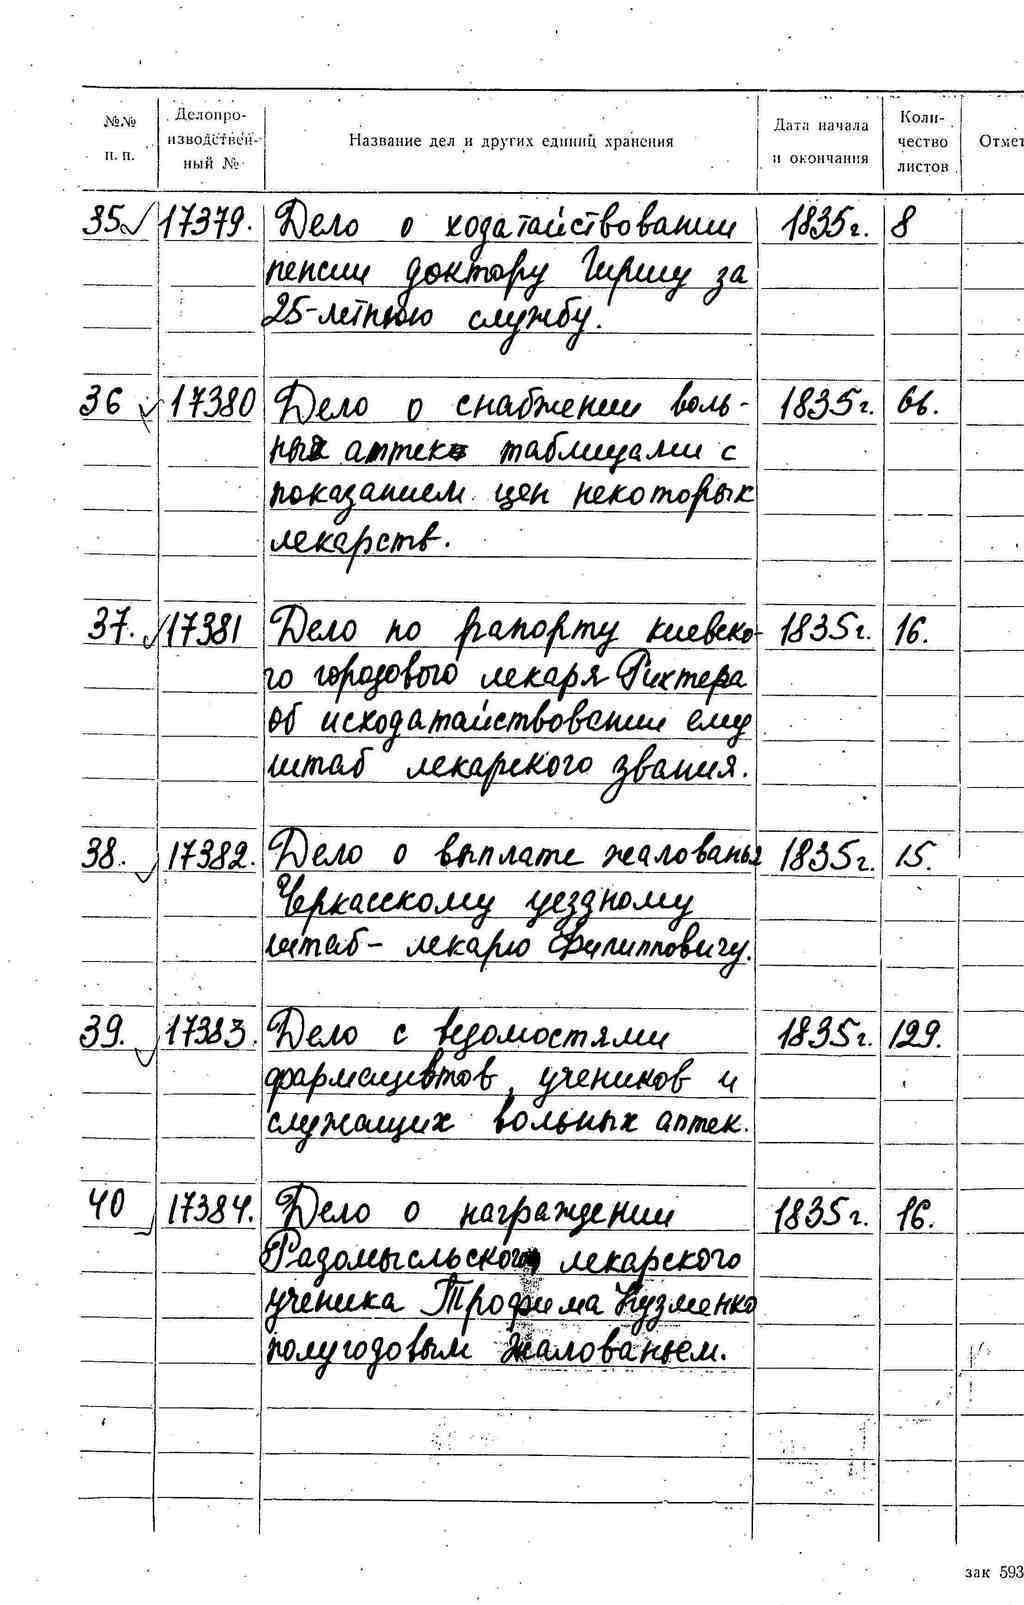 №№ п. п. Делопроизводственный № Название дел и других единиц хранения Дата начала и окончания Количество листов Отмет
35 17379. Дело о ходатайствовании 1835г. 8
пенсии доктору Гиршу за
25-летнюю службу.
36 17380 Дело о снабжении воль- 1835г. 66.
ных аптек таблицами с
показанием цен некоторых
лекарств.
37. 17381 Дело по рапорту киевско- 1835г. 16.
го городового лекаря Рихтера
об исходатайствовании ему
штаб лекарского звания.
38. 17382. Дело о выплате жалованья 1835г. 15.
Черкасскому уездному
штаб- лекарю Филипповичу.
39. 17383. Дело с ведомостями 1835г. 129.
фармацевтов, учеников и
служащих вольных аптек.
40 17384. Дело о награждении 1835г. 16.
Радомысльского лекарского
ученика Трофима Кузменко
полугодовым жалованьем.
зак 593